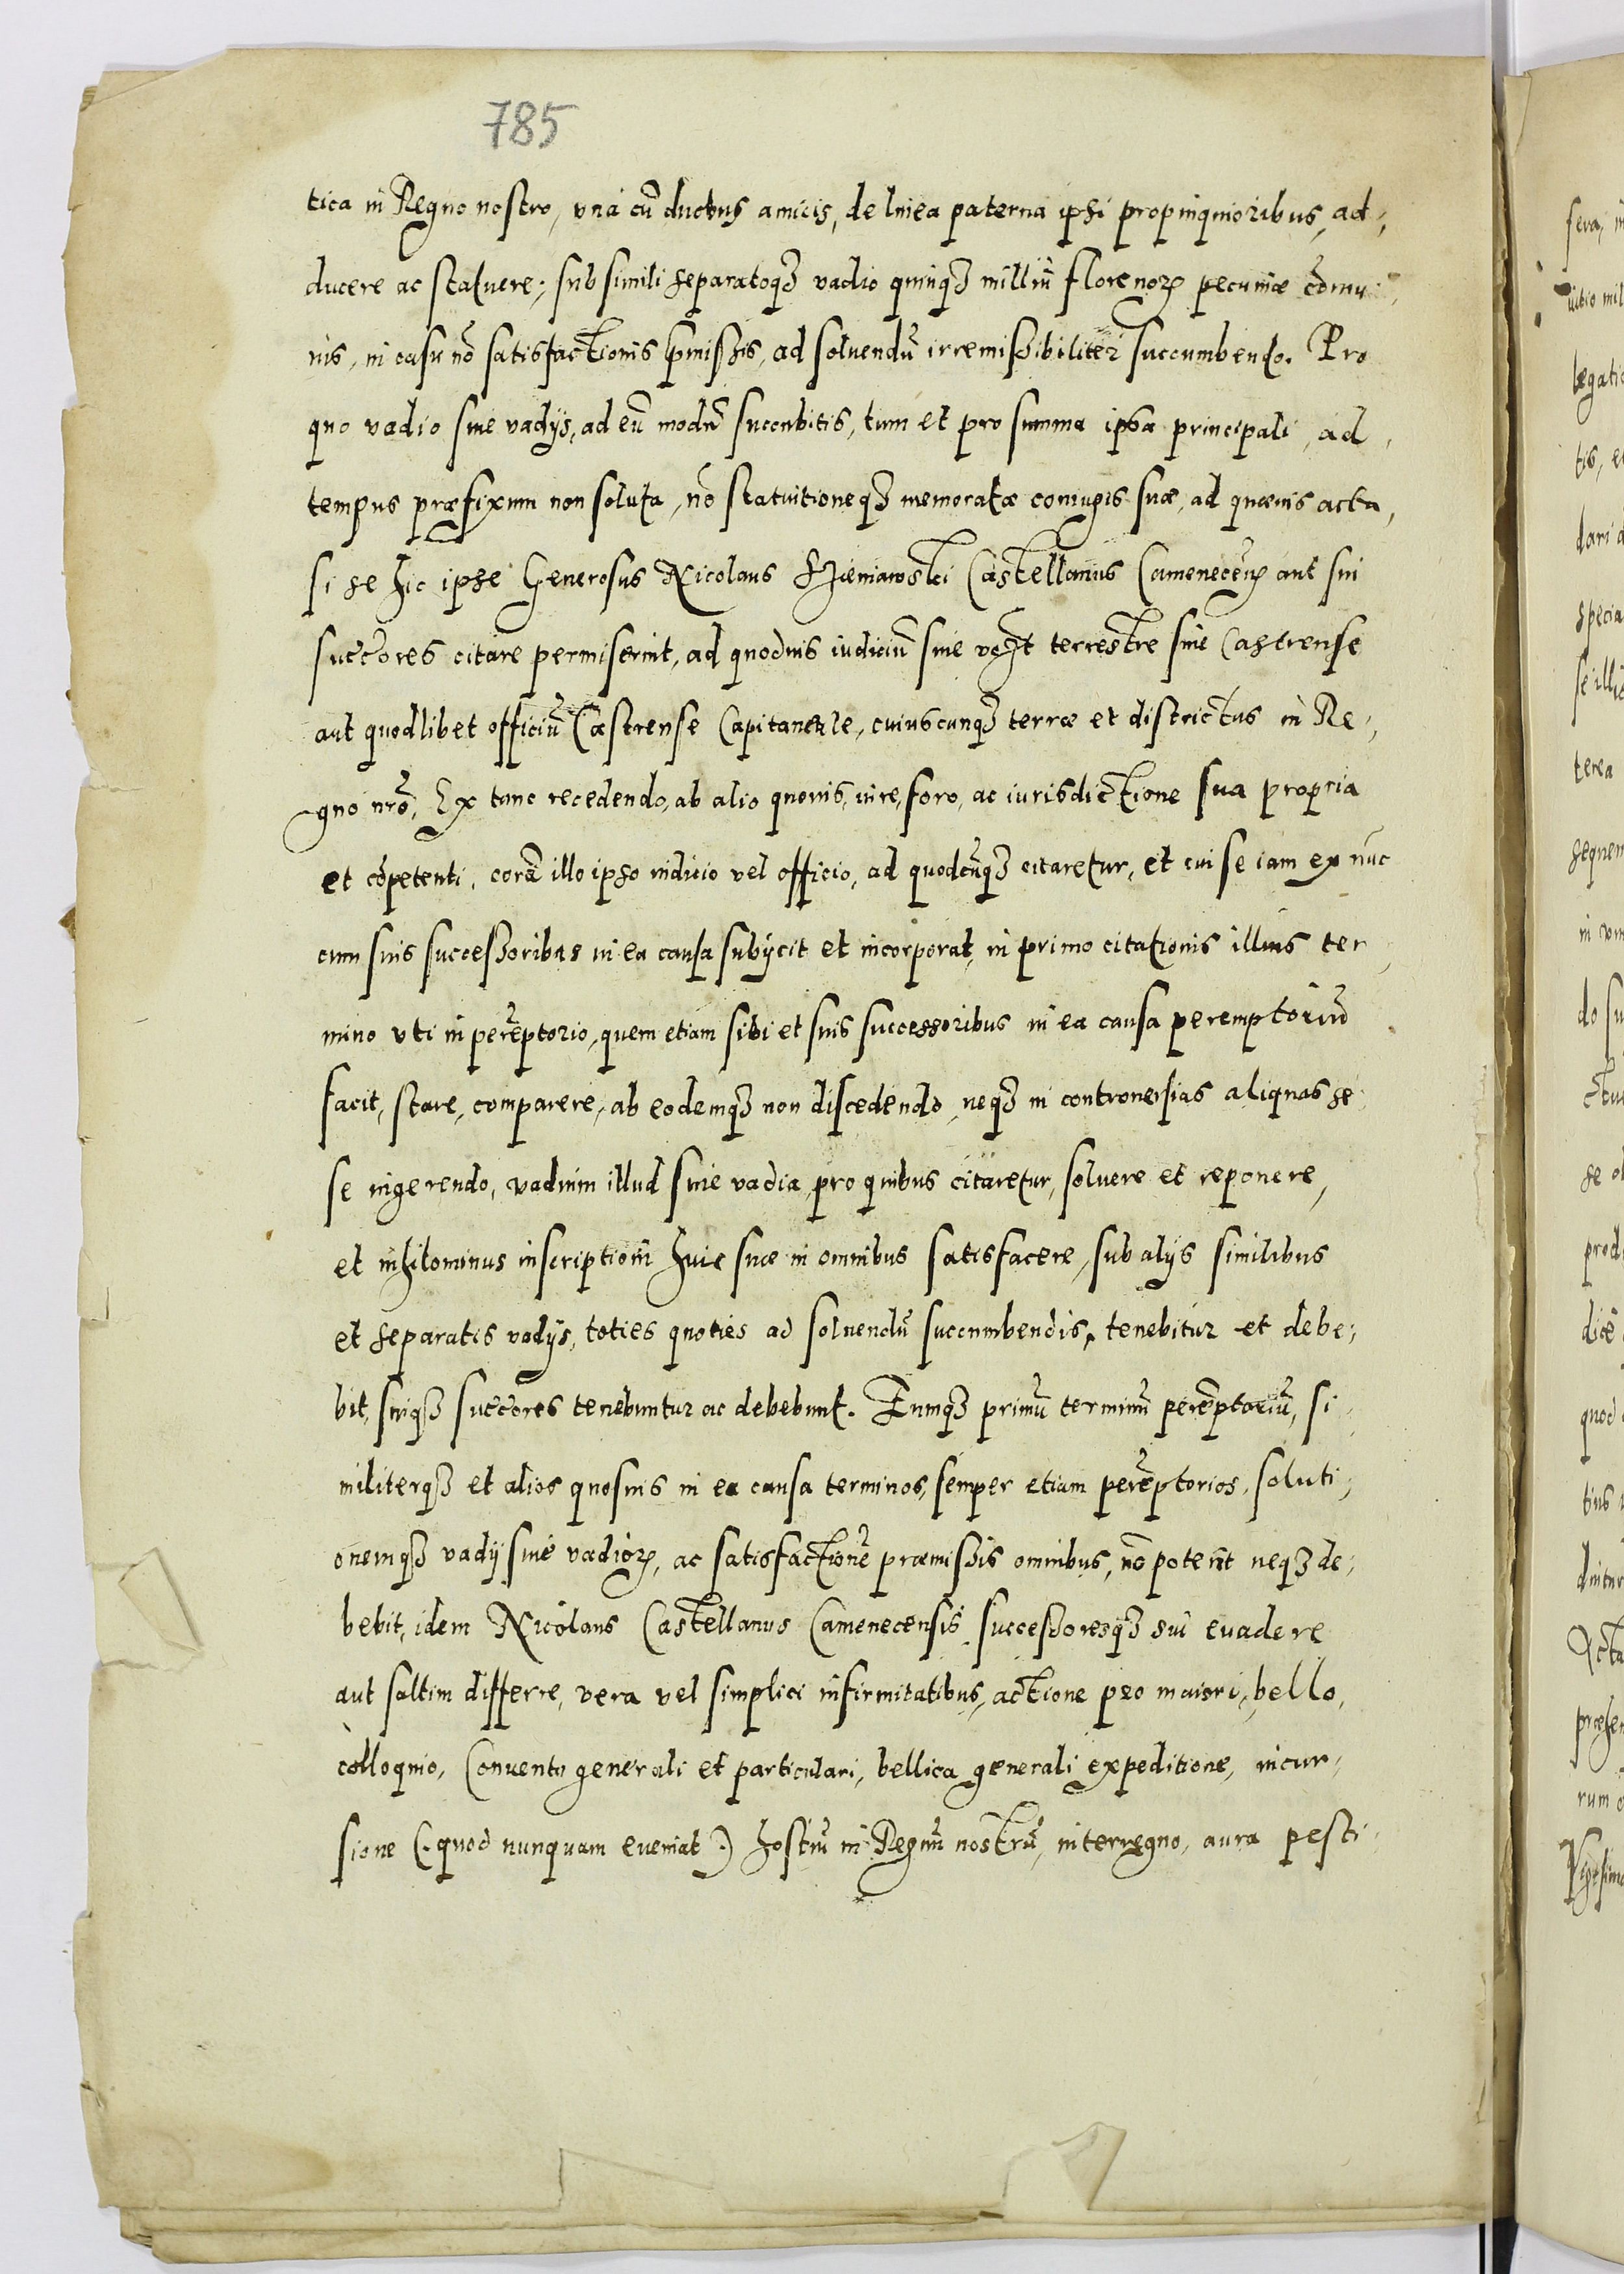 785
tica in Regno nostro, vna cũ duobus amicis, de linea paterna ipsi propinquioribus, ad,
ducere ac statuere; sub simili separatoqꝫ vadio quinqꝫ milliũ florenoꝝ pecuniæ cõmu,
nis, in casu nõ satisfactionis pmissis, ad soluendũ irremissibiliter succumbendo. Pro
quo vadio siue vadijs, ad eũ modũ succubitis, tum et pro summa ipsa principali, ad
tempus præfixum non soluta, nõ statuitioneqꝫ memoratæ coniugis suæ, ad quæuis acta,
si se hic ipse Generosus Nicolaus Sieniawski Castellanus Cameneceñ aut sui
succores citare permiserint, ad quoduis iudiciũ siue terrestre siue Castrense
aut quodlibet officiũ Castrense Capitaneale, cuiuscunqꝫ terræ et districtus in Re,
gno nrõ, Ex tunc recedendo, ab alio quouis, iure, foro, ac iurisdictione sua propria
et cõpetenti, corã illo ipso iudicio vel officio, ad quodcũqꝫ citaretur, et cui se iam ex nũc
cum suis successoribus in ea causa subijcit et incorporat, in primo citationis illius ter,
mino vti in perẽptorio, quem etiam sibi et suis successoribus in ea causa peremptoriũ
facit, stare, comparere, ab eodemqꝫ non discedendo, neqꝫ in controuersias aliquas se
se ingerendo, vadium illud siue vadia, pro quibus citaretur, soluere et reponere,
et nihilominus inscriptioni huic suæ in omnibus satisfacere, sub alijs similibus
et separatis vadijs, toties quoties ad soluendũ succumbendis, tenebitur et debe,
bit, suiqꝫ succores tenebuntur ac debebunt. Eumqꝫ primũ terminũ perẽptoriũ, si,
militerqꝫ et alios quosuis in ea causa terminos, semper etiam perẽptorios, soluti,
onemqꝫ vadij siue vadioꝝ, ac satisfactionẽ præmissis omnibus, nõ poterit neqꝫ de,
bebit, idem Nicolaus Castellanus Camenecensis successoresqꝫ sui euadere
aut saltim differre, vera vel simplici infirmitatibus, actione pro maiori, bello,
colloquio, Conuentu generali et particulari, bellica generali expeditione, incur,
sione (. quod nunquam eueniat .) hostiũ in Regnũ nostrũ, interregno, aura pesti,